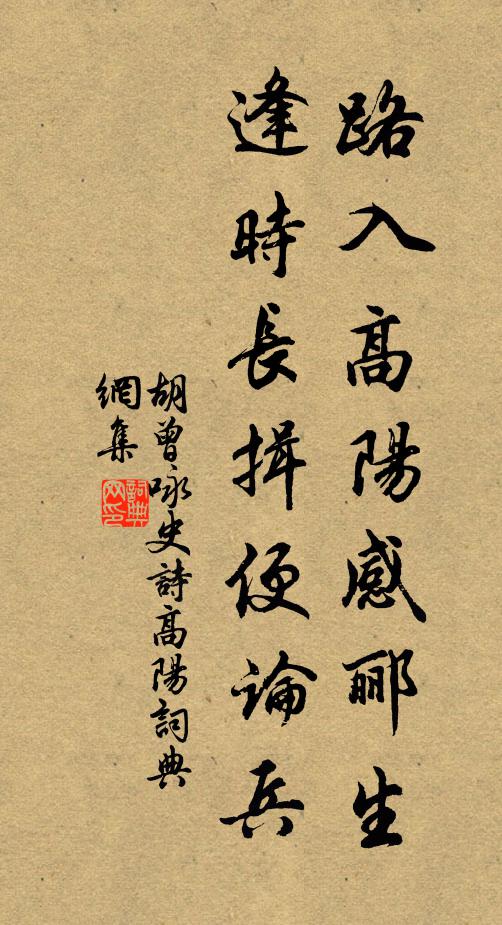 路入高陽感郦生
逢時長揖便論兵
胡曾咏史詩高陽詞典
網集
詞典
网印